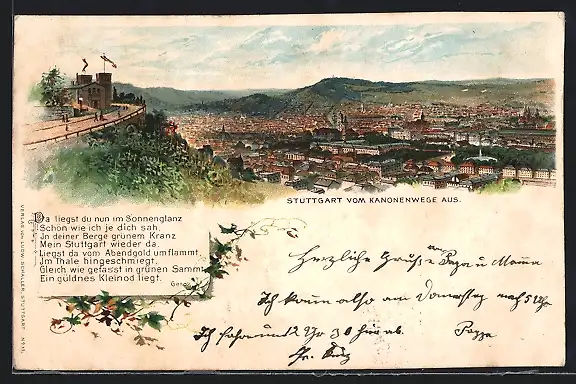 STUTTGART VOM KANONENWEGE AUS.
Da liegst du nun im Sonnenglanz
Schön wie ich je dich sah,
Jn deiner Berge grünem Kranz
Mein Stuttgart wieder da.
Liegst da vom Abendgold umflammt
Jm Thale hingeschmiegt,
Gleich wie gefasst in grünen Sammt
Ein güldnes Kleinod liegt.
Gerok
Herzliche Grüße an Papa u Mama
Ich komme also am Donnerstag nach 5 Uhr
Ich fahre um 12 Uhr 30 hier ab.
VERLAG VON LUDW. SCHALLER, STUTTGART